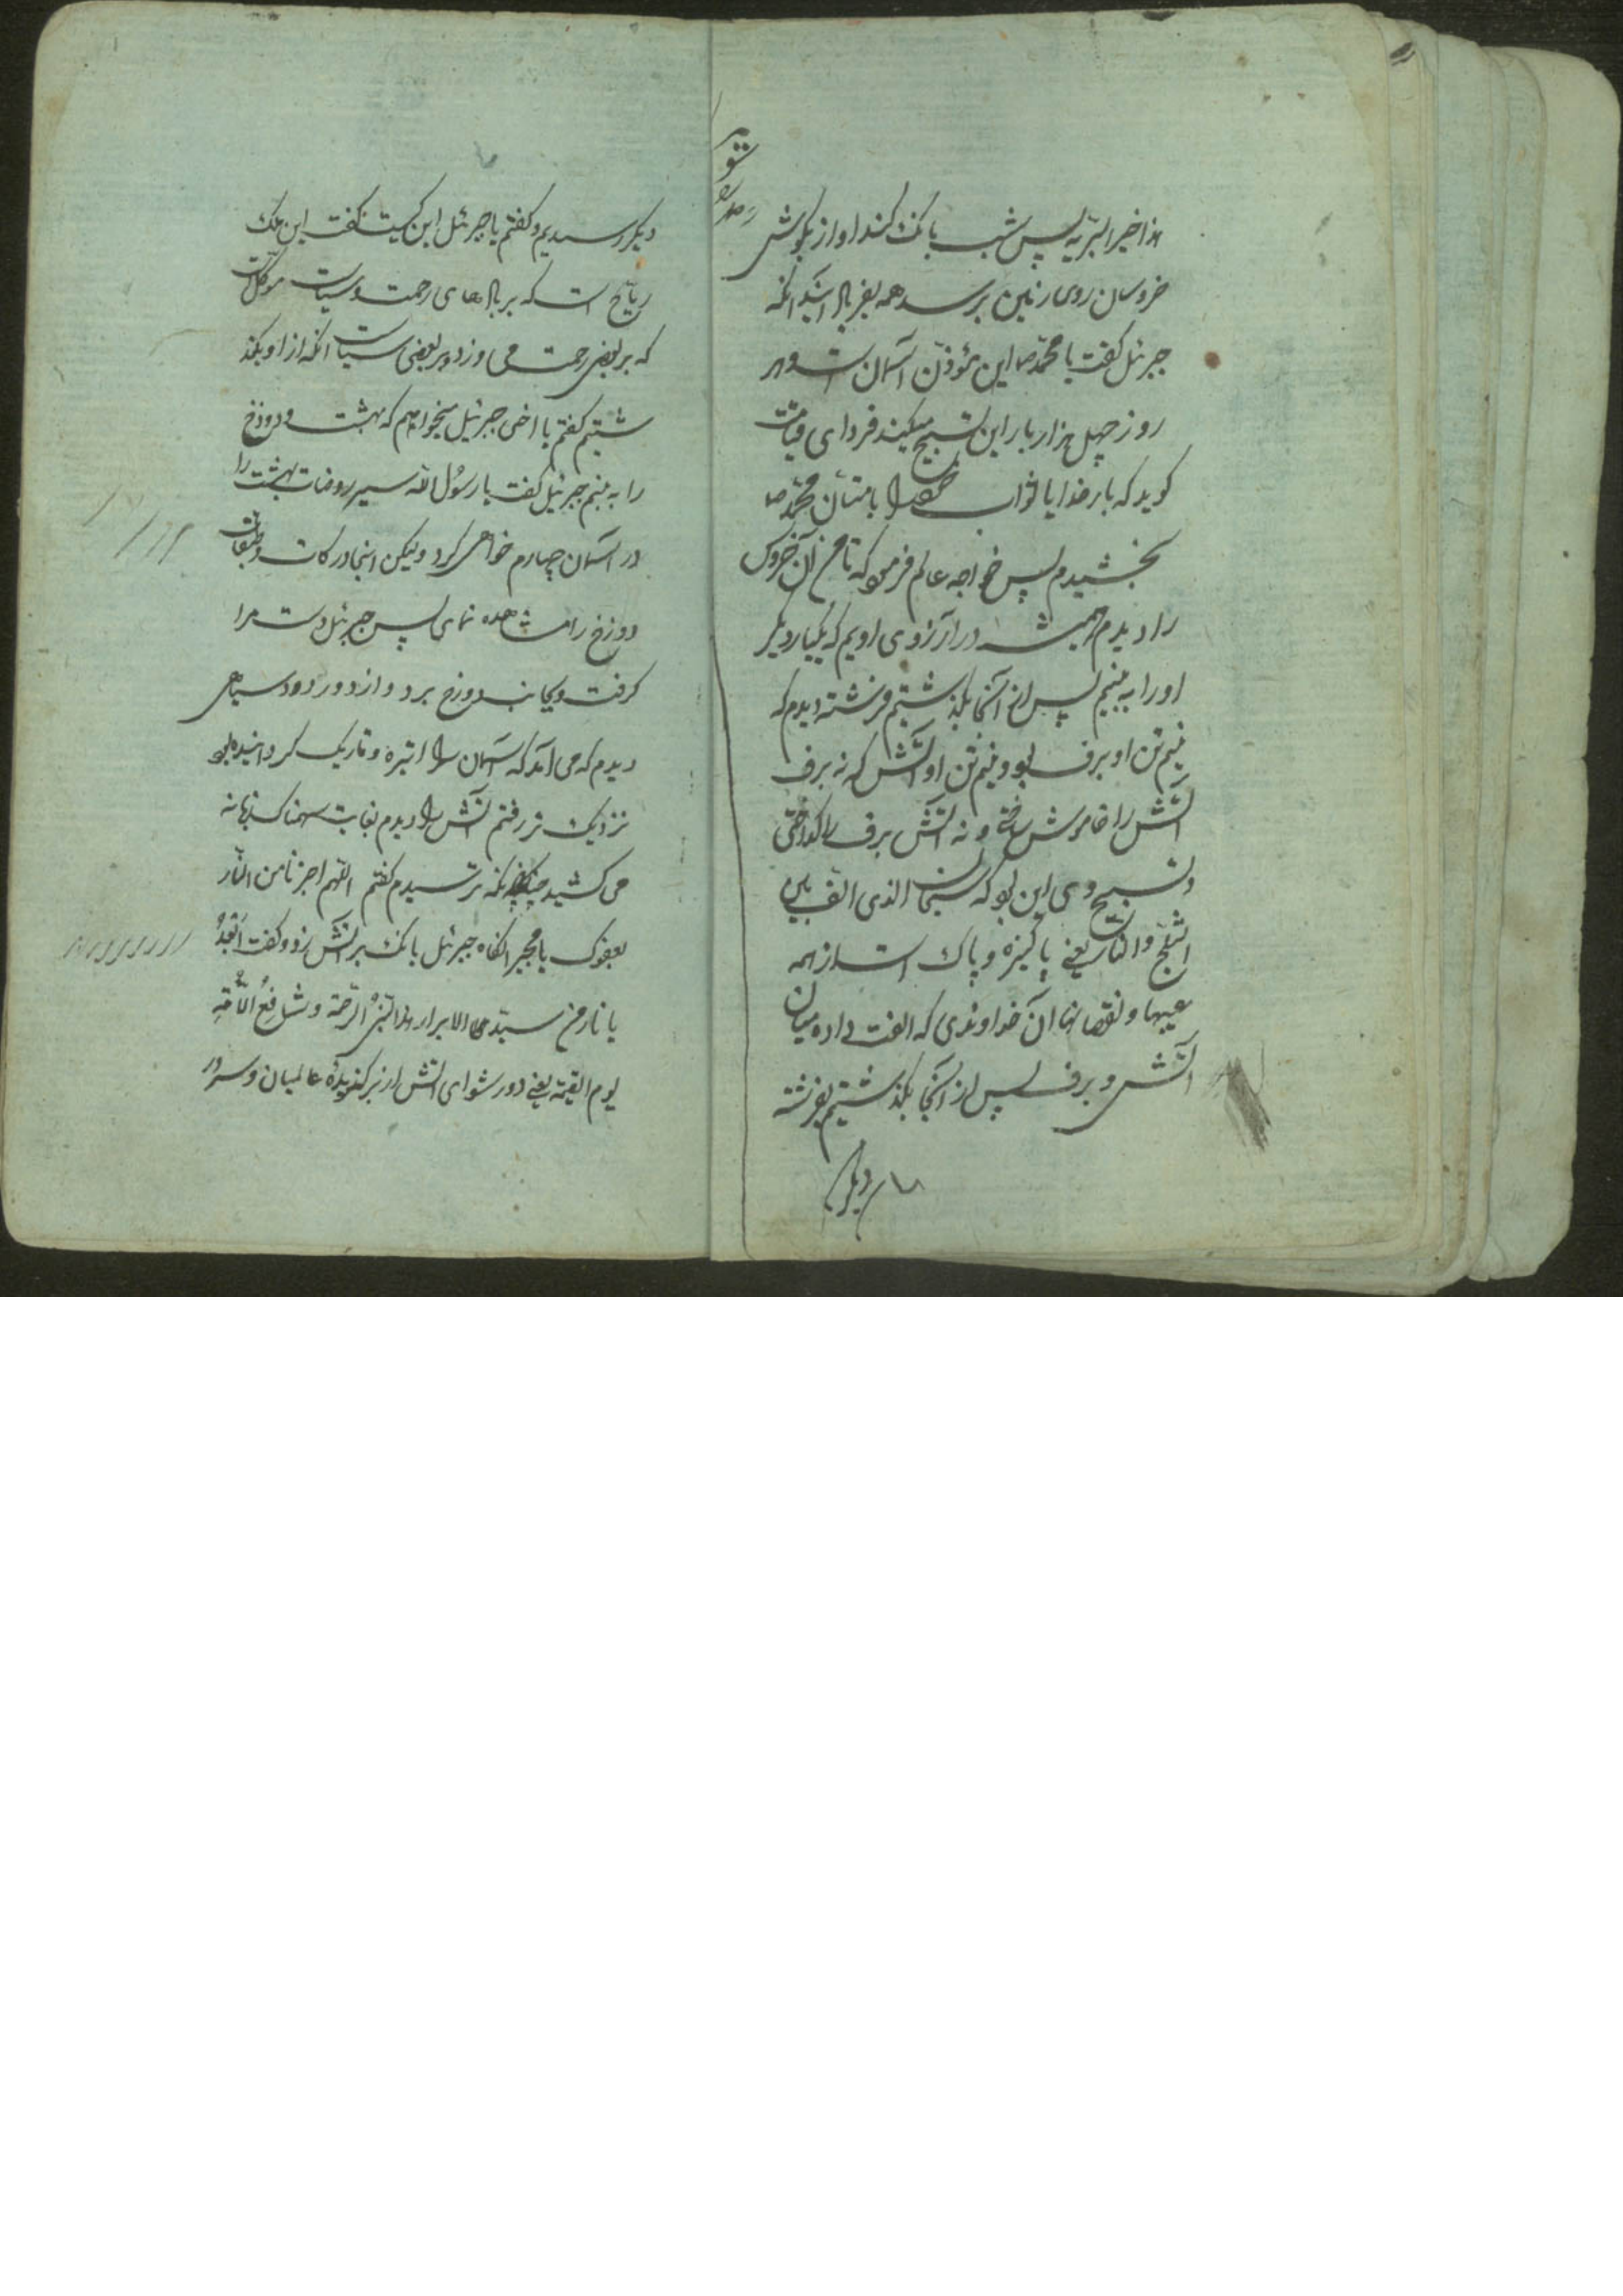 هذا خیر البریه پس شب بانک کند اواز بکوش
خروسان روی زمین برسد همه بفریاد آیند انکه
جبرئل کفت یا محمد ص این مؤذن آسمان است و هر
روز چهل هزار بار این تسبیح میکند فردای قیامت
کوید که بار خدایا ثواب را بامتان محمد ص
بخشیدم پس خواجه عالم فرمود که تا من آن خروس
را دیدم همیشه در آرزوی اویم که یکبار دیکر
اورا به بینم پس از آنجا بگذشتیم فرشته دیدم که
نیم تن او برف بود و نیم تن او آتش که نه برف
آتش را خاموش ساختی و نه آتش برف را کداختی
و تسبیح وی این بود که سبحان الذی الف بین
الثلج و النار یعنی پاکیزه و پاک است از همه
عیبها و نقصانها آن خداوندی که الفت داده میان
آتش و برف پس از آنجا بگذشتیم بفرشته
دیکر
دیکر رسیدیم و کفتم یا جبرئل این کیست کفت این ملک
ریاح است که بر بادهای رحمت و سیاست موکل است
که بر بعضی رحمت می وزد و بر بعضی سیاست انکه از او بکذ
شتیم کفتم یا اخی جبرئیل میخواهم که بهشت و دوزخ
را به بینم جبرئیل کفت یا رسول الله سیر روضات بهشت را
در آسمان چهارم خواهی کرد ولیکن اینجا درکات و طبقات
دوزخ را مشاهده نمای پس جبرئل دست مرا
کرفت و بجانب دوزخ برد و از دور دود سیاهی
دیدم که می آمد که آسمان را تیره و تاریک کردانیده بود
نزدیک تر رفتم آتش را دیدم بغایت سهمناک زبانه
می کشید چنانکه ترسیدم کفتم اللهم اجرنا من النار
بعفوک یا مجیر انکاه جبرئل بانک بر آتش زد و کفت ابعد
یا نار من سید الابرار هذا النبی الرحمة و شافع الامة
یوم القیمة یعنی دور شو ای آتش از برکزیدهٔ عالمیان و سرور